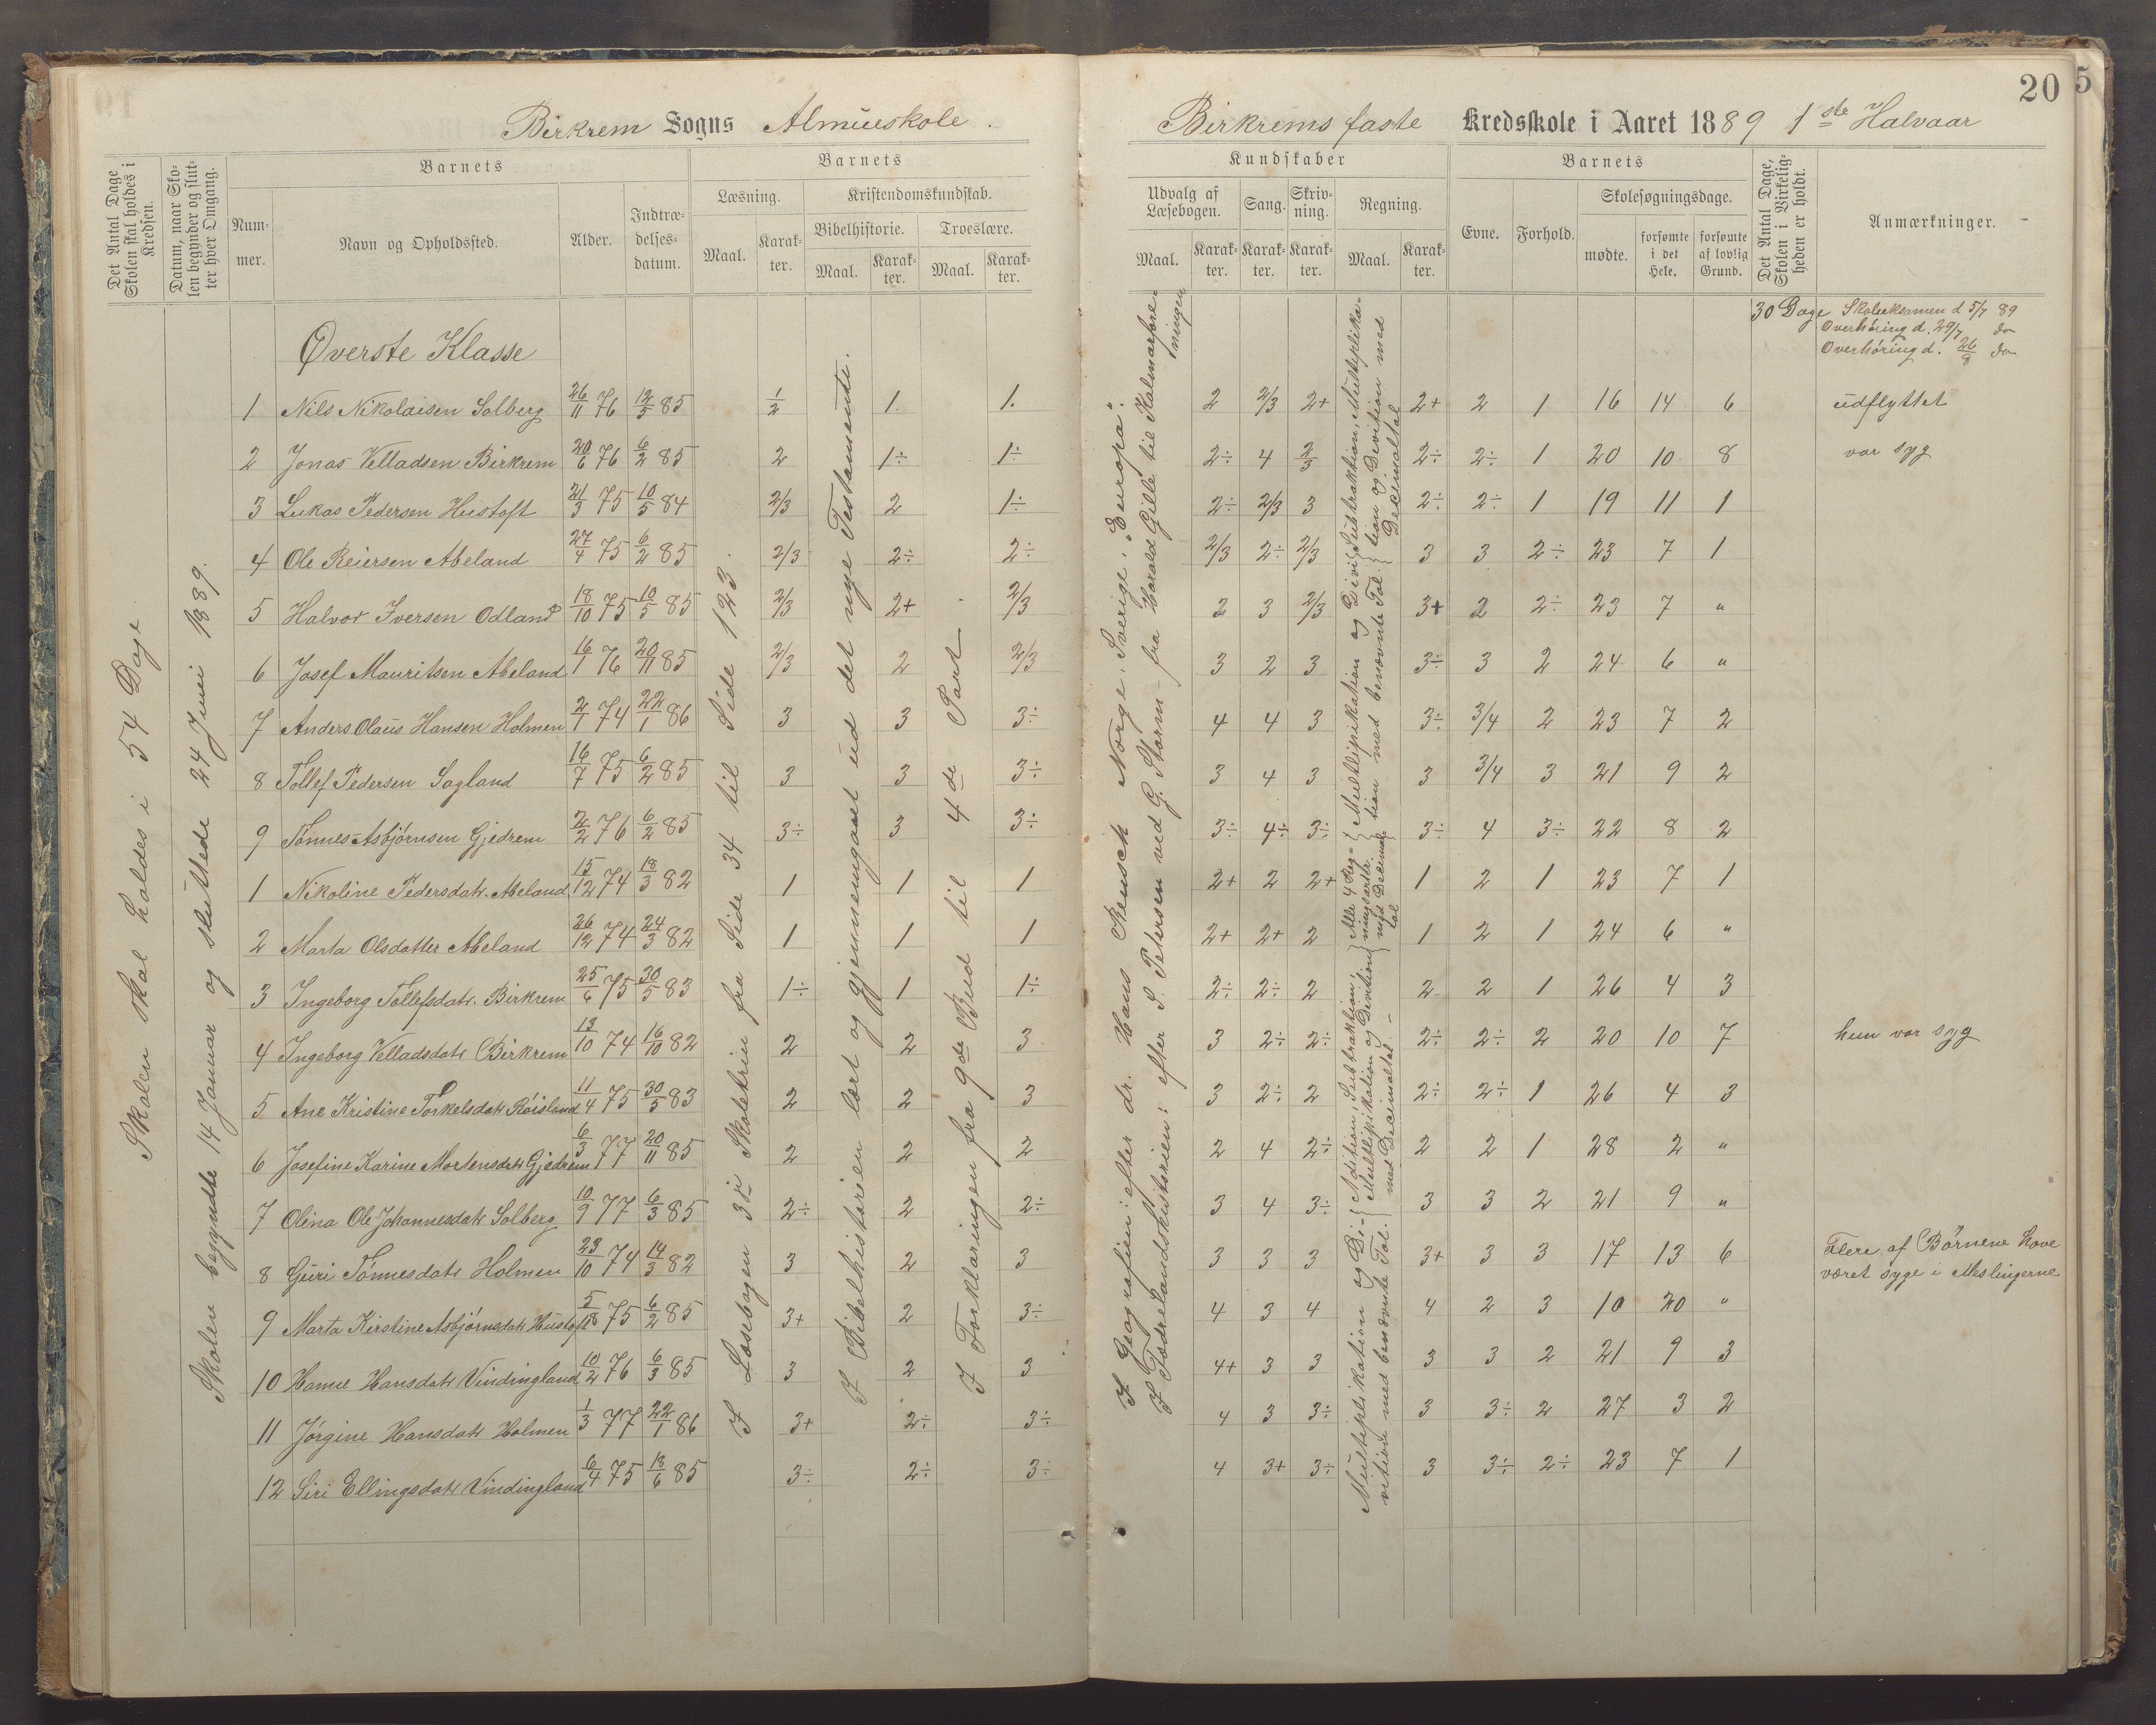 20
5
Birkrem Sogns Almueskole.
Birkrems faste Kredsskole i Aaret 1889 1ste Halvaar
Det Antal Dage Skolen skal holdes i Kredsen.
Datum, naar Skolen begynder og slutter hver Omgang.
Barnets
Nummer.
Navn og Opholdssted.
Alder.
Indtrædelsesdatum.
Barnets
Læsning.
Maal.
Karakter.
Kristendomskundskab.
Bibelhistorie.
Maal.
Karakter.
Troeslære.
Maal.
Karakter.
Kundskaber
Udvalg af Læsebogen.
Maal.
Karakter.
Sang.
Karakter.
Skrivning.
Karakter.
Regning.
Maal.
Karakter.
Barnets
Evne.
Forhold.
Skolesøgningsdage.
mødte.
forsømte i det Hele.
forsømte af lovlig Grund.
Det Antal Dage, Skolen i Virkeligheden er holdt.
Anmærkninger.
Skolen skal holdes i 54 Dage
Skolen begyndte 14 Januar og sluttede 24 Juni 1889.
I Læsebogen 3die Skoletrin fra Side 34 til Side 123.
I Bibelhistorien lært og gjennemgaaet ud det nye Testamente.
I Forklaringen fra 9de Bud til 4de Part.
I Geografien: efter dr. Hans Reusch Norge, Sverige, "Europa".
I Fædrelandshistorien: efter S. Petersen ved G. Storm - fra Harald Gille til Kalmarforeningen
Multiplikation og Division med benævnte Tal.
Adition, Subtraktion, Multiplikation og Division med Decimaltal. -
Alle 4 Regningsarter med Decimaltal
Multiplikation og Division med benævnte Tal.
Subtraktion, Multiplikation og Division med Decimaltal
30 Dage
Skoleeksamen d 5/7 89
Overhøring d. 29/7 do
Overhøring d. 26/8 do
Øverste Klasse
1 Nils Nikolaisen Solberg 26/11 76 12/5 85 1/2 1. 1. 2 2/3 2+ 2+ 2 1 16 14 6 udflyttet
2 Jonas Velladsen Birkrem 20/6 76 6/2 85 2 1÷ 1÷ 2÷ 4 2/3 2÷ 2÷ 1 20 10 8 var syg
3 Lukas Pedersen Hustoft 21/3 75 10/5 84 2/3 2 1÷ 2÷ 2/3 3 2÷ 2÷ 1 19 11 1
4 Ole Reiersen Abeland 27/4 75 6/2 85 2/3 2÷ 2÷ 2/3 2÷ 2/3 3 3 2÷ 23 7 1
5 Halvor Iversen Odland 18/10 75 10/5 85 2/3 2+ 2/3 2 3 2/3 3+ 2 2÷ 23 7 "
6 Josef Mauritsen Abeland 16/1 76 20/11 85 2/3 2 2/3 3 2 3 3÷ 3 2 24 6 "
7 Anders Olaus Hansen Holmen 2/1 74 22/1 86 3 3 3÷ 4 4 3 3÷ 3/4 2 23 7 2
8 Tollef Pedersen Sagland 16/7 75 6/2 85 3 3 3÷ 3 4 3 3 3/4 3 21 9 2
9 Tønnes Asbjørnsen Gjedrem 2/2 76 6/2 85 3÷ 3 3÷ 3÷ 4÷ 3÷ 3÷ 4 3÷ 22 8 2
1 Nikoline Pedersdatr. Abeland 15/12 74 18/3 82 1 1 1 2+ 2 2+ 1 2 1 23 7 1
2 Marta Olsdatter Abeland 26/12 74 24/3 82 1 1 1 2+ 2+ 2 1 2 1 24 6 "
3 Ingeborg Tollefsdatr. Birkrem 25/6 75 30/5 83 1÷ 1 1÷ 2÷ 2÷ 2 2 2 1 26 4 3
4 Ingeborg Velladsdatr Birkrem 13/10 74 16/10 82 2 2 3 3 2÷ 2÷ 2÷ 2÷ 2 20 10 7 hun var syg
5 Ane Kristine Torkelsdatr Røisland 11/4 75 30/5 83 2 2 3 3 2÷ 2 2÷ 2÷ 1 26 4 3
6 Josefine Karine Mortensdatr Gjedrem 6/3 77 20/11 85 2 2 2 2 4 2÷ 2 2 1 28 2 "
7 Olina Ole Johannesdatr Solberg 10/9 77 6/3 85 2÷ 2 2÷ 3 4 3÷ 3 3 2 21 9 "
8 Guri Tønnesdatr Holmen 23/10 74 14/3 82 3 2 3 3 3 3 3+ 3 3 17 13 6 Flere af Børnene have
været syge i Meslingerne
9 Marta Kirstine Asbjørnsdatr Hustoft 75 6/2 85 3+ 2 3÷ 4 3 4 4 2 3 10 20 "
10 Hanne Hansdatr Vindingland 10/2 76 6/3 85 3 2 3 4+ 3 3 3 3 2 21 9 3
11 Jørgine Hansdatr Holmen 1/3 77 22/1 86 3+ 2÷ 3÷ 4 3 3÷ 3 3÷ 2 27 3 2
12 Siri Ellingsdatr Vindingland 6/4 75 18/6 85 3÷ 2÷ 3÷ 4 3+ 3÷ 3 3÷ 2÷ 23 7 1